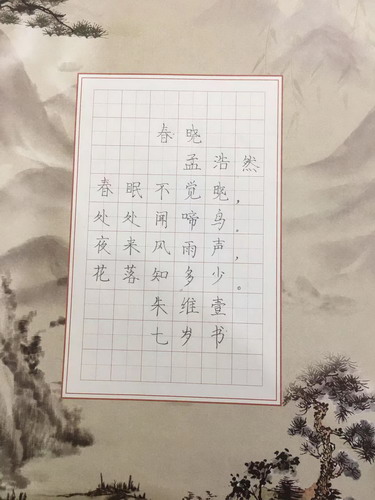 春晓
孟浩然
春眠不觉晓，
处处闻啼鸟。
夜来风雨声，
花落知多少。
朱维壹
七岁书